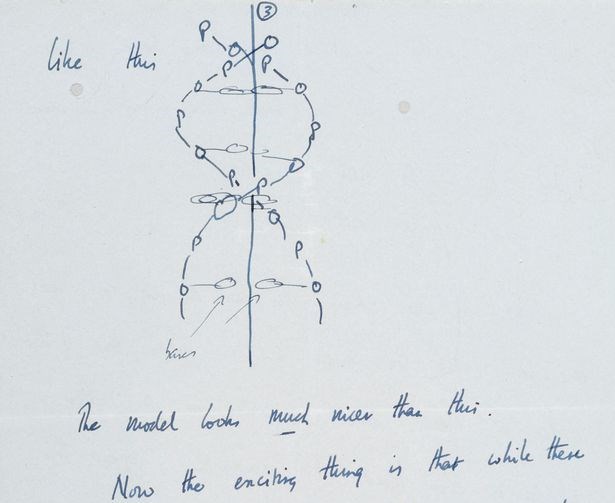 ③
Like this
P
P P
P P
P. P
P P
bases
The model looks much nicer than this.
Now the exciting thing is that while there